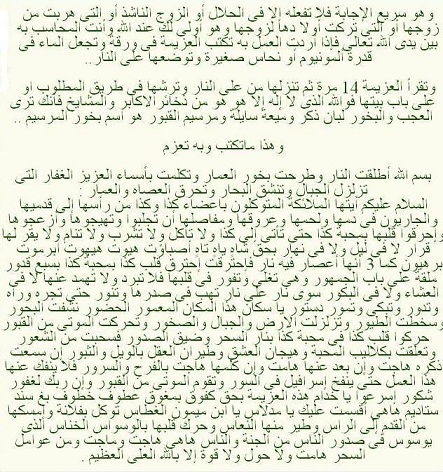 وهو سريع الإجابة فلا تفعله إلا فى الحلال أو الزوج الناشذ أو التى هربت من
زوجها أو التى تركت أولا دها لزوجها وهو أولى لك عند الله وأنت المحاسب به
بين يدى الله تعالى فإذا أردت العمل به تكتب العزيمة فى ورقة وتجعل الماء فى
قدرة المونيوم أو نحاس صغيرة وتوضعها على النار..
وتقرأ العزيمة 14 مرة ثم تنزلها من على النار وترشها فى طريق المطلوب او
على باب بيتها فوالله الذى لا إله إلا هو هو من ذخائر الاكابر والمشايخ فأنك ترى
العجب والبخور لبان ذكر وميعة سايلة ومرسيم القبور هو أسم بخور المرسيم ..
وهذا ماتكتب وبه تعزم
بسم الله أطلقت النار وطرحت بخور العمار وتكلمت بأسماء العزيز الغفار التى
تزلزل الجبال وتنشق البحار وتحرق العصاه والعمار :
السلام عليكم أيتها الملائكة المتوكلون بأعضاء كذا وكذا من رأسها إلى قدميها
والجاريون فى دمها ولحمها وعروقها ومفاصلها أن تجلبوا وتهيجوها وأزعجوها
وإحرقوا قلبها بمحبة كذا حتى تأتى إلى كذا ولا تأكل ولا تشرب ولا تنام ولا يقر لها
قرار لا فى ليل ولا فى نهار بحق شاه ياه تاه أصباؤت هيوت هيهوت ابرموت
برهيون كما 3 أنها أعصار فيه نار فاحترقت احترق قلب كذا بمحبة كذا بسبع قدور
ملقة على باب الجمهور وهى تغلى وتفور فى قلبها فلا تبرد ولا تهمد عنها لا فى
العشاء ولا فى البكور سوى نار على نار تهب فى صدرها وتنور حتى تجره وراه
وتدور وتبكى وتمور دستور يا سكان هذا المكان المعمور الحضور نشفت البحور
وسخطت الطيور وتزلزلت الارض والجبال والصخور وتحركت الموتى من القبور
حركوا قلب كذا فى محبة كذا بنار السحر وضيق الصدور فسحبت من الشعور
وتعلقت بكلاليب المحبة وهيجان العشق وطيران العقل بالويل والثبور إن سمعت
ذكره هاجت وإن بعد عنها هامت وإن كلمها هاجت بالفرح والسرور فلا ينفك عنها
هذا العمل حتى ينفخ إسرافيل فى السور وتقوم الموتى من القبور وإن ربك لغفور
شكور إسرعوا يا خدام هذه العزيمة بحق كفوق بمغوق عطوف خطوف بغ سند
ستاديم هاهى أقسمت عليك يا مدلاس يا ابن ميمون الغطاس توكل بفلانة وإمسكها
من القدم إلى الراس وطير منها النعاس وحرك قلبها بالوسواس الخناس الذى
يوسوس فى صدور الناس من الجنة والناس هاهى هاجت وماجت ومن عوامل
السحر هامت ولا حول ولا قوة إلا بالله العلى العظيم .